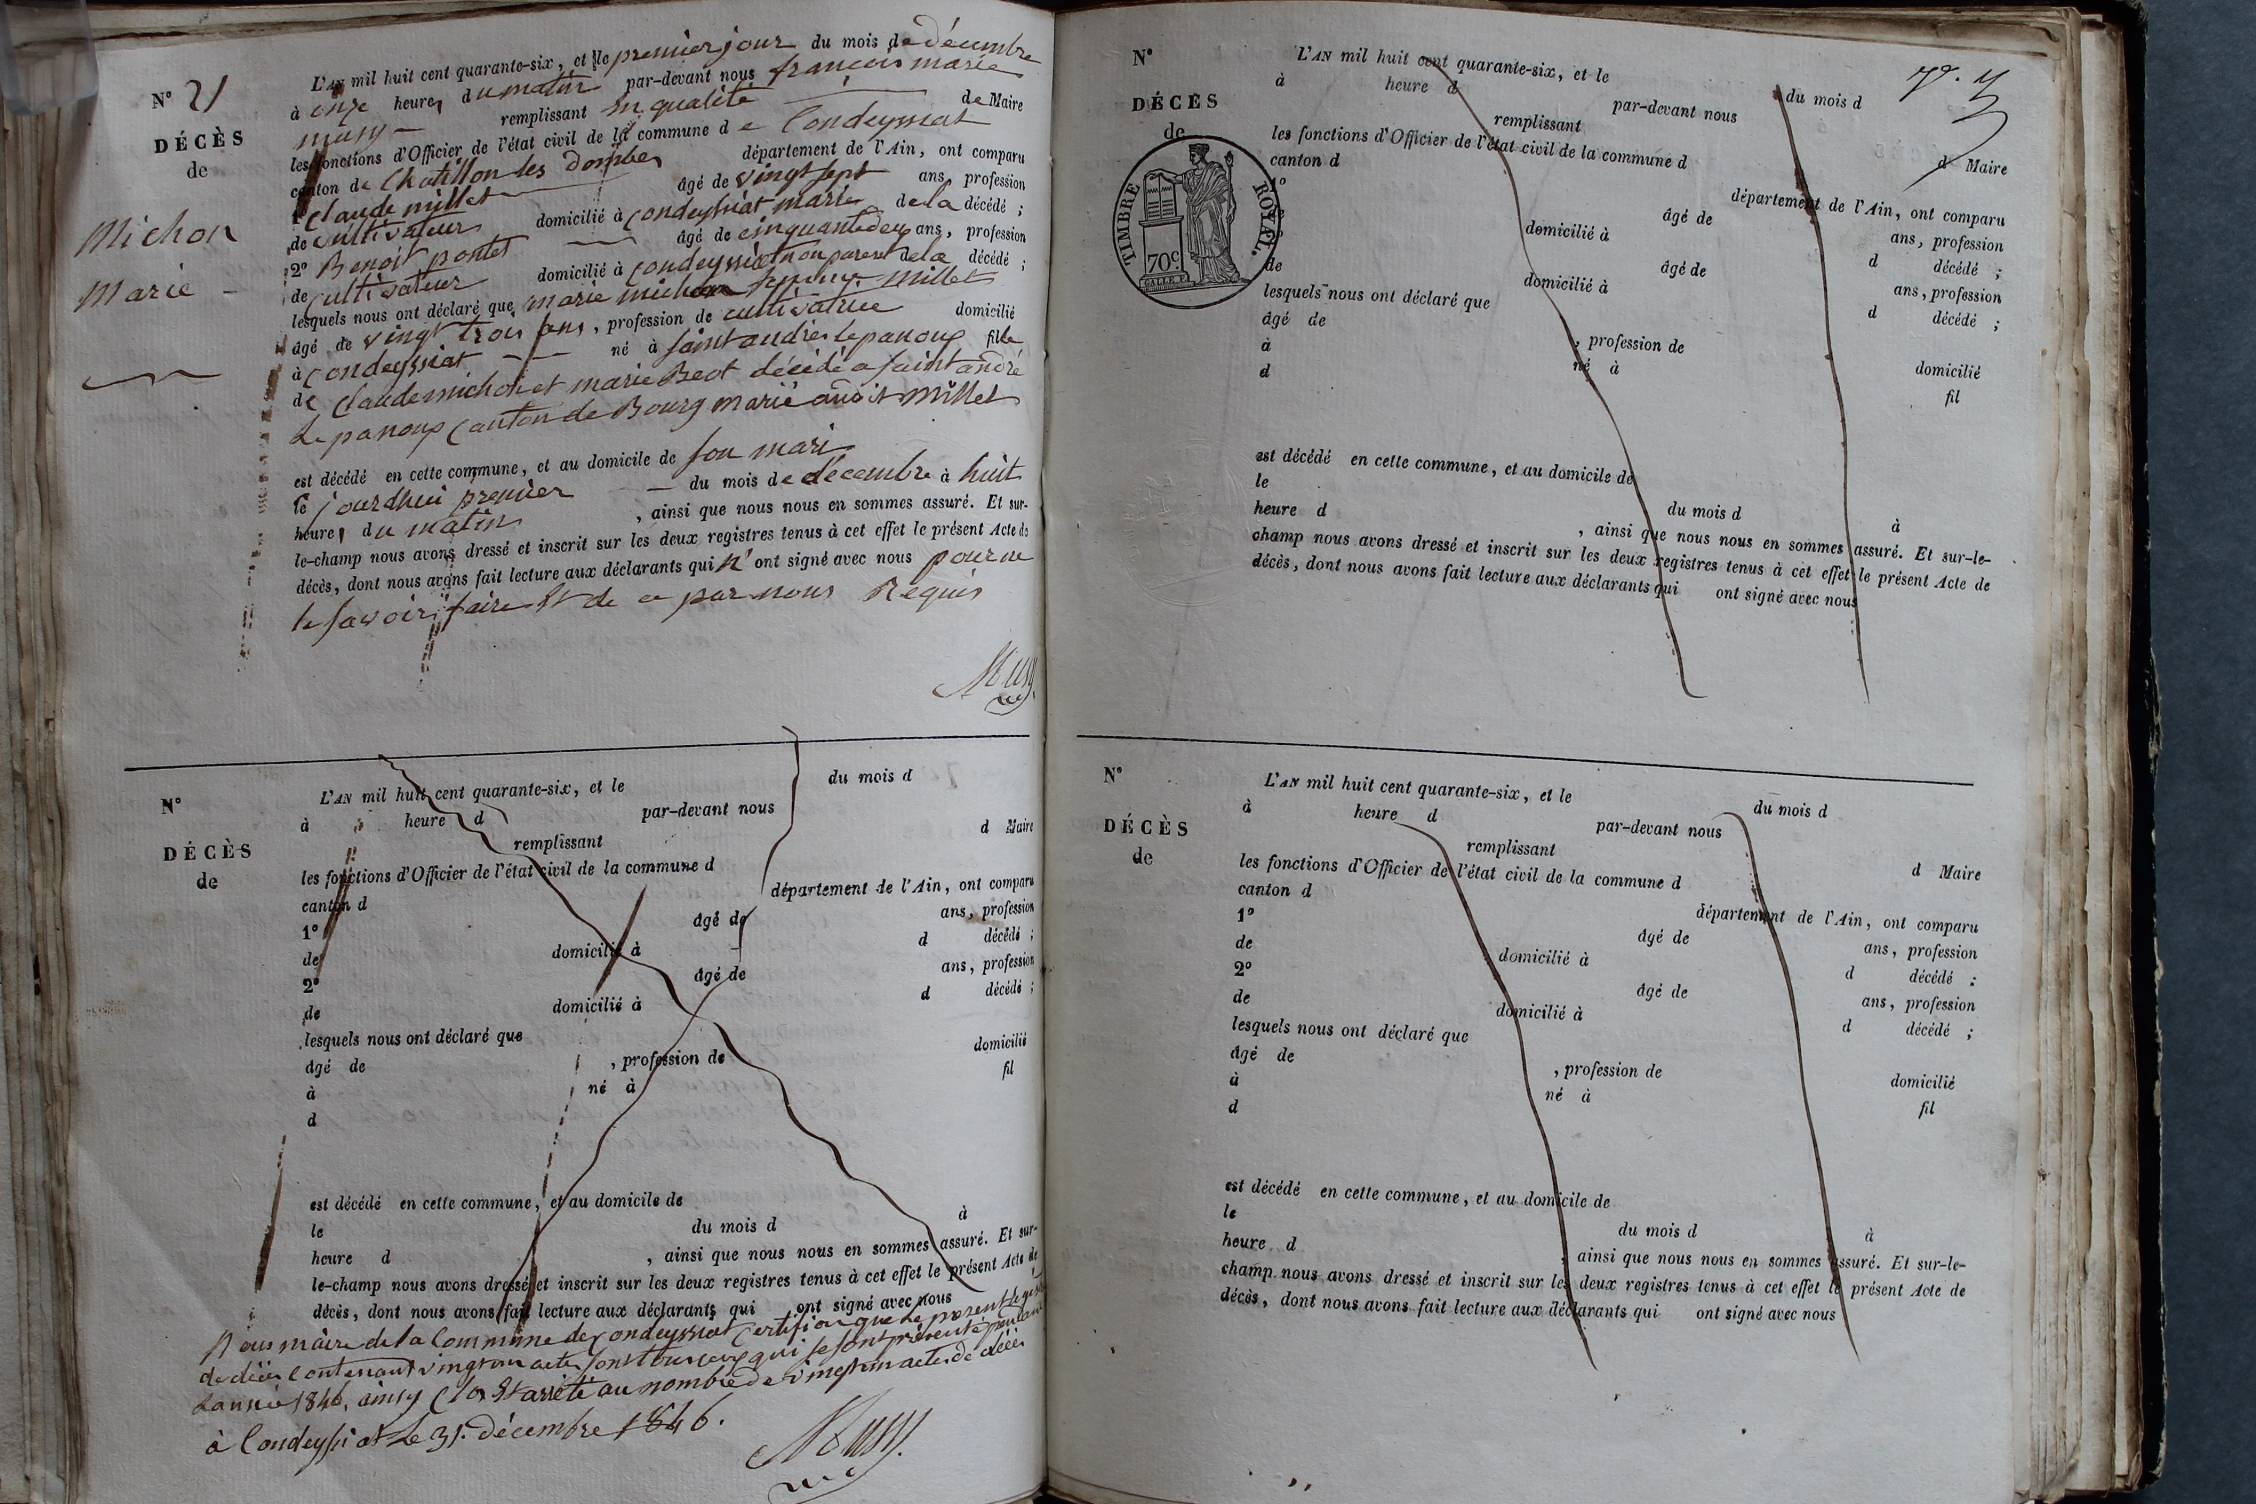 N° 21
DÉCÈS
de
Michon
Marie
L'AN mil huit cent quarante-six, et le premier jour du mois de décembre
à onze heures du matin par-devant nous françois marie
musy remplissant en qualité de Maire
les fonctions d'Officier de l'état civil de la commune de Condeyssiat
canton de Chatillon les dombes département de l'Ain, ont comparu
1° Claude millet âgé de vingt sept ans, profession
de cultivateur domicilié à Condeyssiat marié de la décédé ;
2° Benoit pontet âgé de cinquante deux ans, profession
de cultivateur domicilié à Condeyssiat non parent de la décédé ;
lesquels nous ont déclaré que marie michon femme millet
âgé de vingt trois ans, profession de cultivatrice domicilié
à Condeyssiat né à saint andré le panoux fille
de Claude michon et marie Beot décédé a saint andré
Le panoux Canton de Bourg marié audit millet
est décédé en cette commune, et au domicile de son mari
le jourdhui premier du mois de décembre à huit
heure du matin, ainsi que nous nous en sommes assuré. Et sur-
le-champ nous avons dressé et inscrit sur les deux registres tenus à cet effet le présent Acte de
décès, dont nous avons fait lecture aux déclarants qui n'ont signé avec nous pour ne
le savoir faire Et de ce par nous Requis
Musy
N°
DÉCÈS
de
L'AN mil huit cent quarante-six, et le du mois d
à heure d par-devant nous
remplissant d Maire
les fonctions d'Officier de l'état civil de la commune d
canton d département de l'Ain, ont comparu
1° âgé de ans, profession
de domicilié à d décédé ;
2° âgé de ans, profession
de domicilié à d décédé ;
lesquels nous ont déclaré que
âgé de , profession de domicilié
à né à fil
d
est décédé en cette commune, et au domicile de
le du mois d à
heure d , ainsi que nous nous en sommes assuré. Et sur-
le-champ nous avons dressé et inscrit sur les deux registres tenus à cet effet le présent Acte de
décès, dont nous avons fait lecture aux déclarants qui ont signé avec nous
Nous maire de la Commune de Condeyssiat Certifion que le present
de décès Contenant vingt un actes sont tous ceux qui se sont présenté
L'année 1846, ainsy Clos Et arrêté au nombre de vingt un actes de décès
à Condeyssiat Le 31. décembre 1846.
Musy
N°
DÉCÈS
de
TIMBRE ROYAL.
70c
L'AN mil huit cent quarante-six, et le du mois d
à heure d par-devant nous
remplissant d Maire
les fonctions d'Officier de l'état civil de la commune d
canton d département de l'Ain, ont comparu
1° âgé de ans, profession
domicilié à d décédé ;
âgé de ans, profession
de domicilié à d décédé ;
lesquels nous ont déclaré que
âgé de , profession de domicilié
à né à fil
d
est décédé en cette commune, et au domicile de
le du mois d à
heure d , ainsi que nous nous en sommes assuré. Et sur-le-
champ nous avons dressé et inscrit sur les deux registres tenus à cet effet le présent Acte de
décès, dont nous avons fait lecture aux déclarants qui ont signé avec nous
N°
DÉCÈS
de
L'AN mil huit cent quarante-six, et le du mois d
à heure d par-devant nous
remplissant d Maire
les fonctions d'Officier de l'état civil de la commune d
canton d département de l'Ain, ont comparu
1° âgé de ans, profession
de domicilié à d décédé ;
2° âgé de ans, profession
de domicilié à d décédé ;
lesquels nous ont déclaré que
âgé de , profession de domicilié
à né à fil
d
est décédé en cette commune, et au domicile de
le du mois d à
heure d , ainsi que nous nous en sommes assuré. Et sur-le-
champ nous avons dressé et inscrit sur les deux registres tenus à cet effet le présent Acte de
décès, dont nous avons fait lecture aux déclarants qui ont signé avec nous